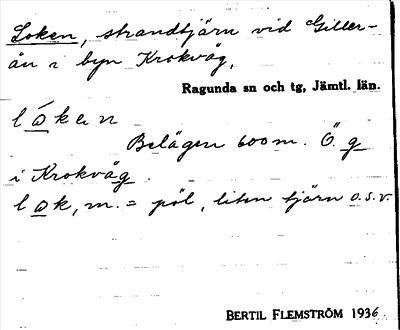 Loken, strandtjärn vid Giller-
ån i byn Krokvåg,
Ragunda sn och tg, Jämtl. län.
lókan
Belägen 600 m. Ö. g
i Krokvåg.
lok, m. = pöl, liten tjärn o.s.v.
BERTIL FLEMSTRÖM 1936